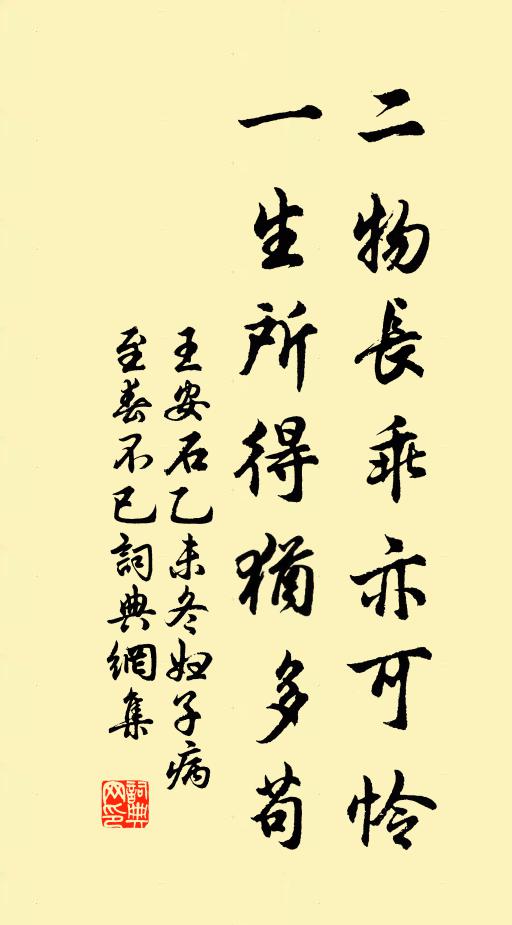 二物長乖亦可怜
一生所得猶多苟
王安石乙未冬婦子病
至春不已詞典網集
詞典网印